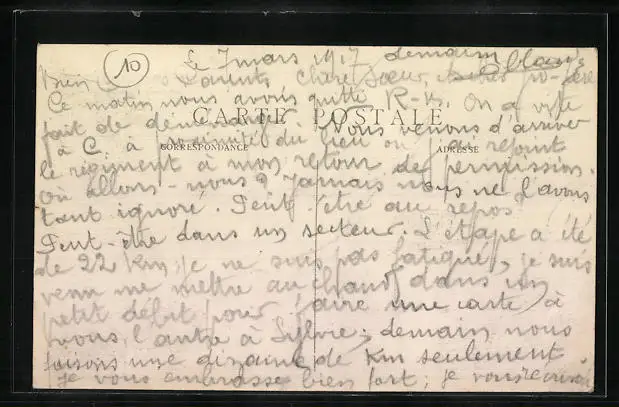 10
Le 7 mars 1917 demain
Bien Parents, Chère Soeur,
Ce matin nous avons quitté R-vs. On a vite
CARTE POSTALE
fait de déménager. Nous venons d'arriver
à C. à proximité du lieu où j'ai rejoint
CORRESPONDANCE ADRESSE
le régiment à mon retour de permission.
Où allons-nous? Jamais nous ne l'avons
tant ignoré. Peut être au repos
Peut-être dans un secteur. L'étape a été
de 22 km; je ne suis pas fatigué, je suis
venu me mettre au chaud dans un
petit débit pour faire une carte, à
vous, l'autre à Sylvie; demain nous
faisons une dizaine de km seulement.
je vous embrasse bien fort; je vous écrirai